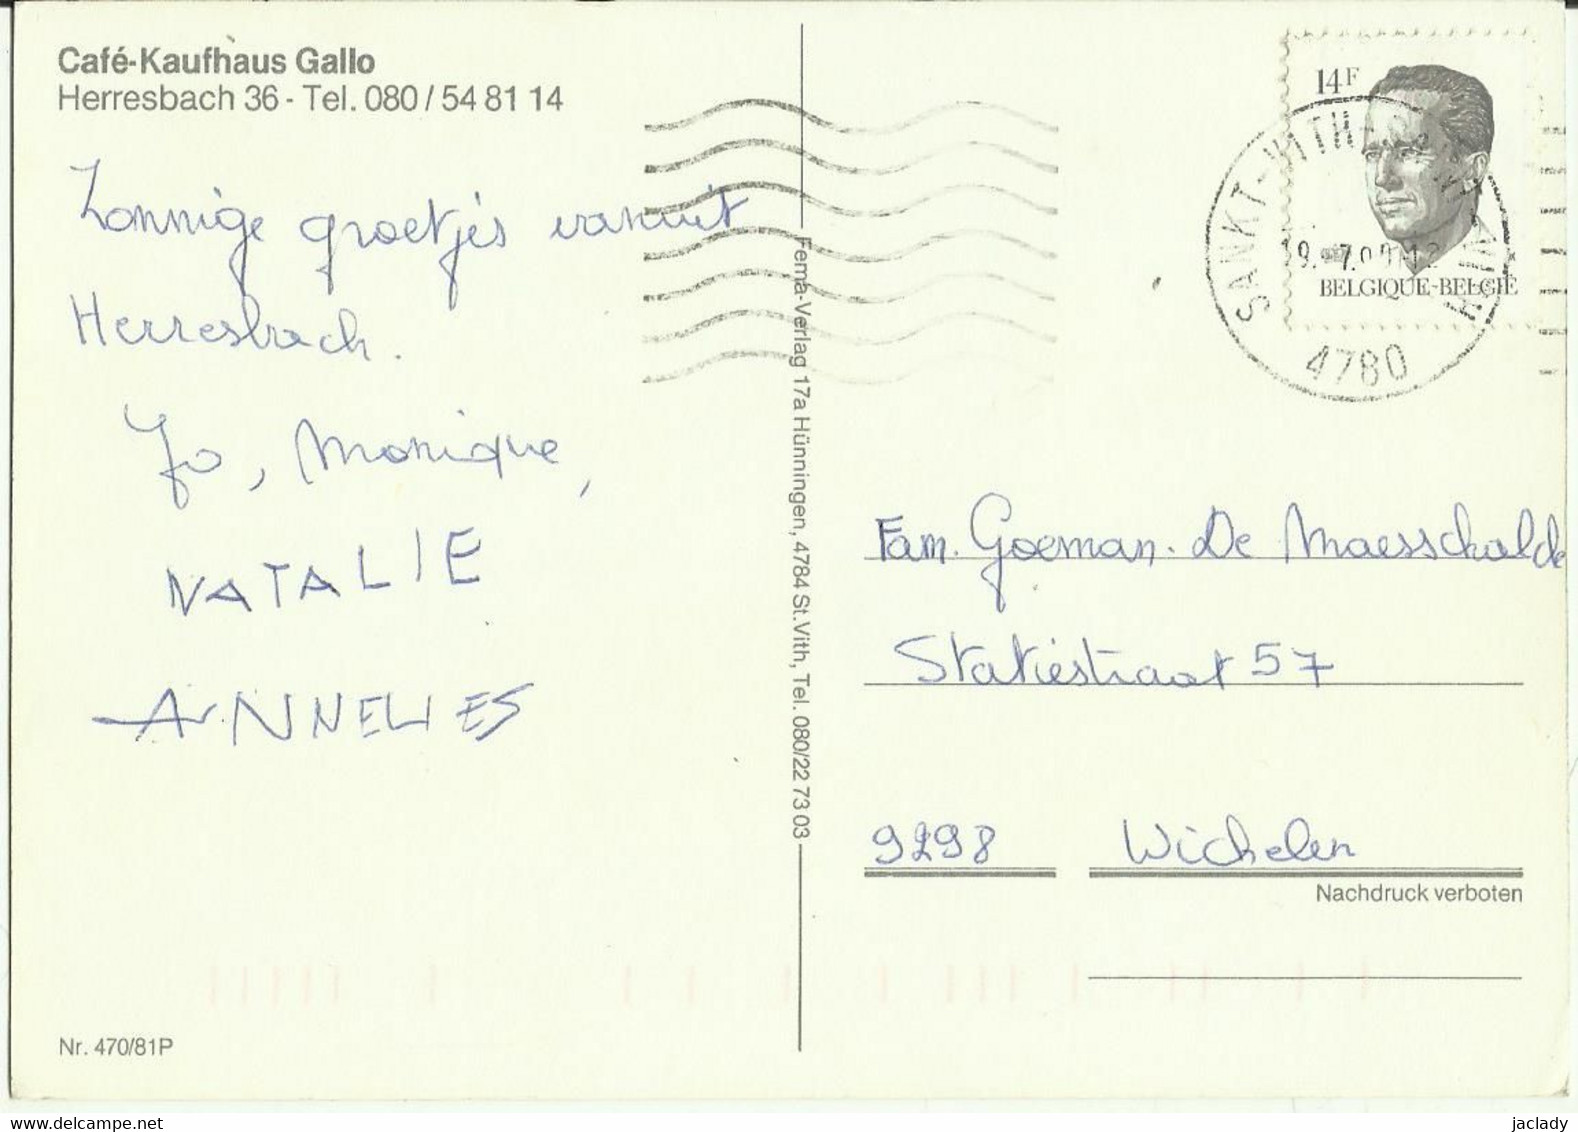 Café-Kaufhaus Gallo
Herresbach 36 - Tel. 080 / 54 81 14
Zonnige groetjes vanuit
Herresbach.
Jo, Monique,
NATALIE
ANNELIES
Nr. 470/81P
Fema-Verlag 17a Hünningen, 4784 St. Vith, Tel. 080/22 73 03
14F
BELGIQUE-BELGIË
SANKT-VITH
4780
Fam. Goeman - De Maesschalck
Statiestraat 57
9298 Wichelen
Nachdruck verboten
jaclady